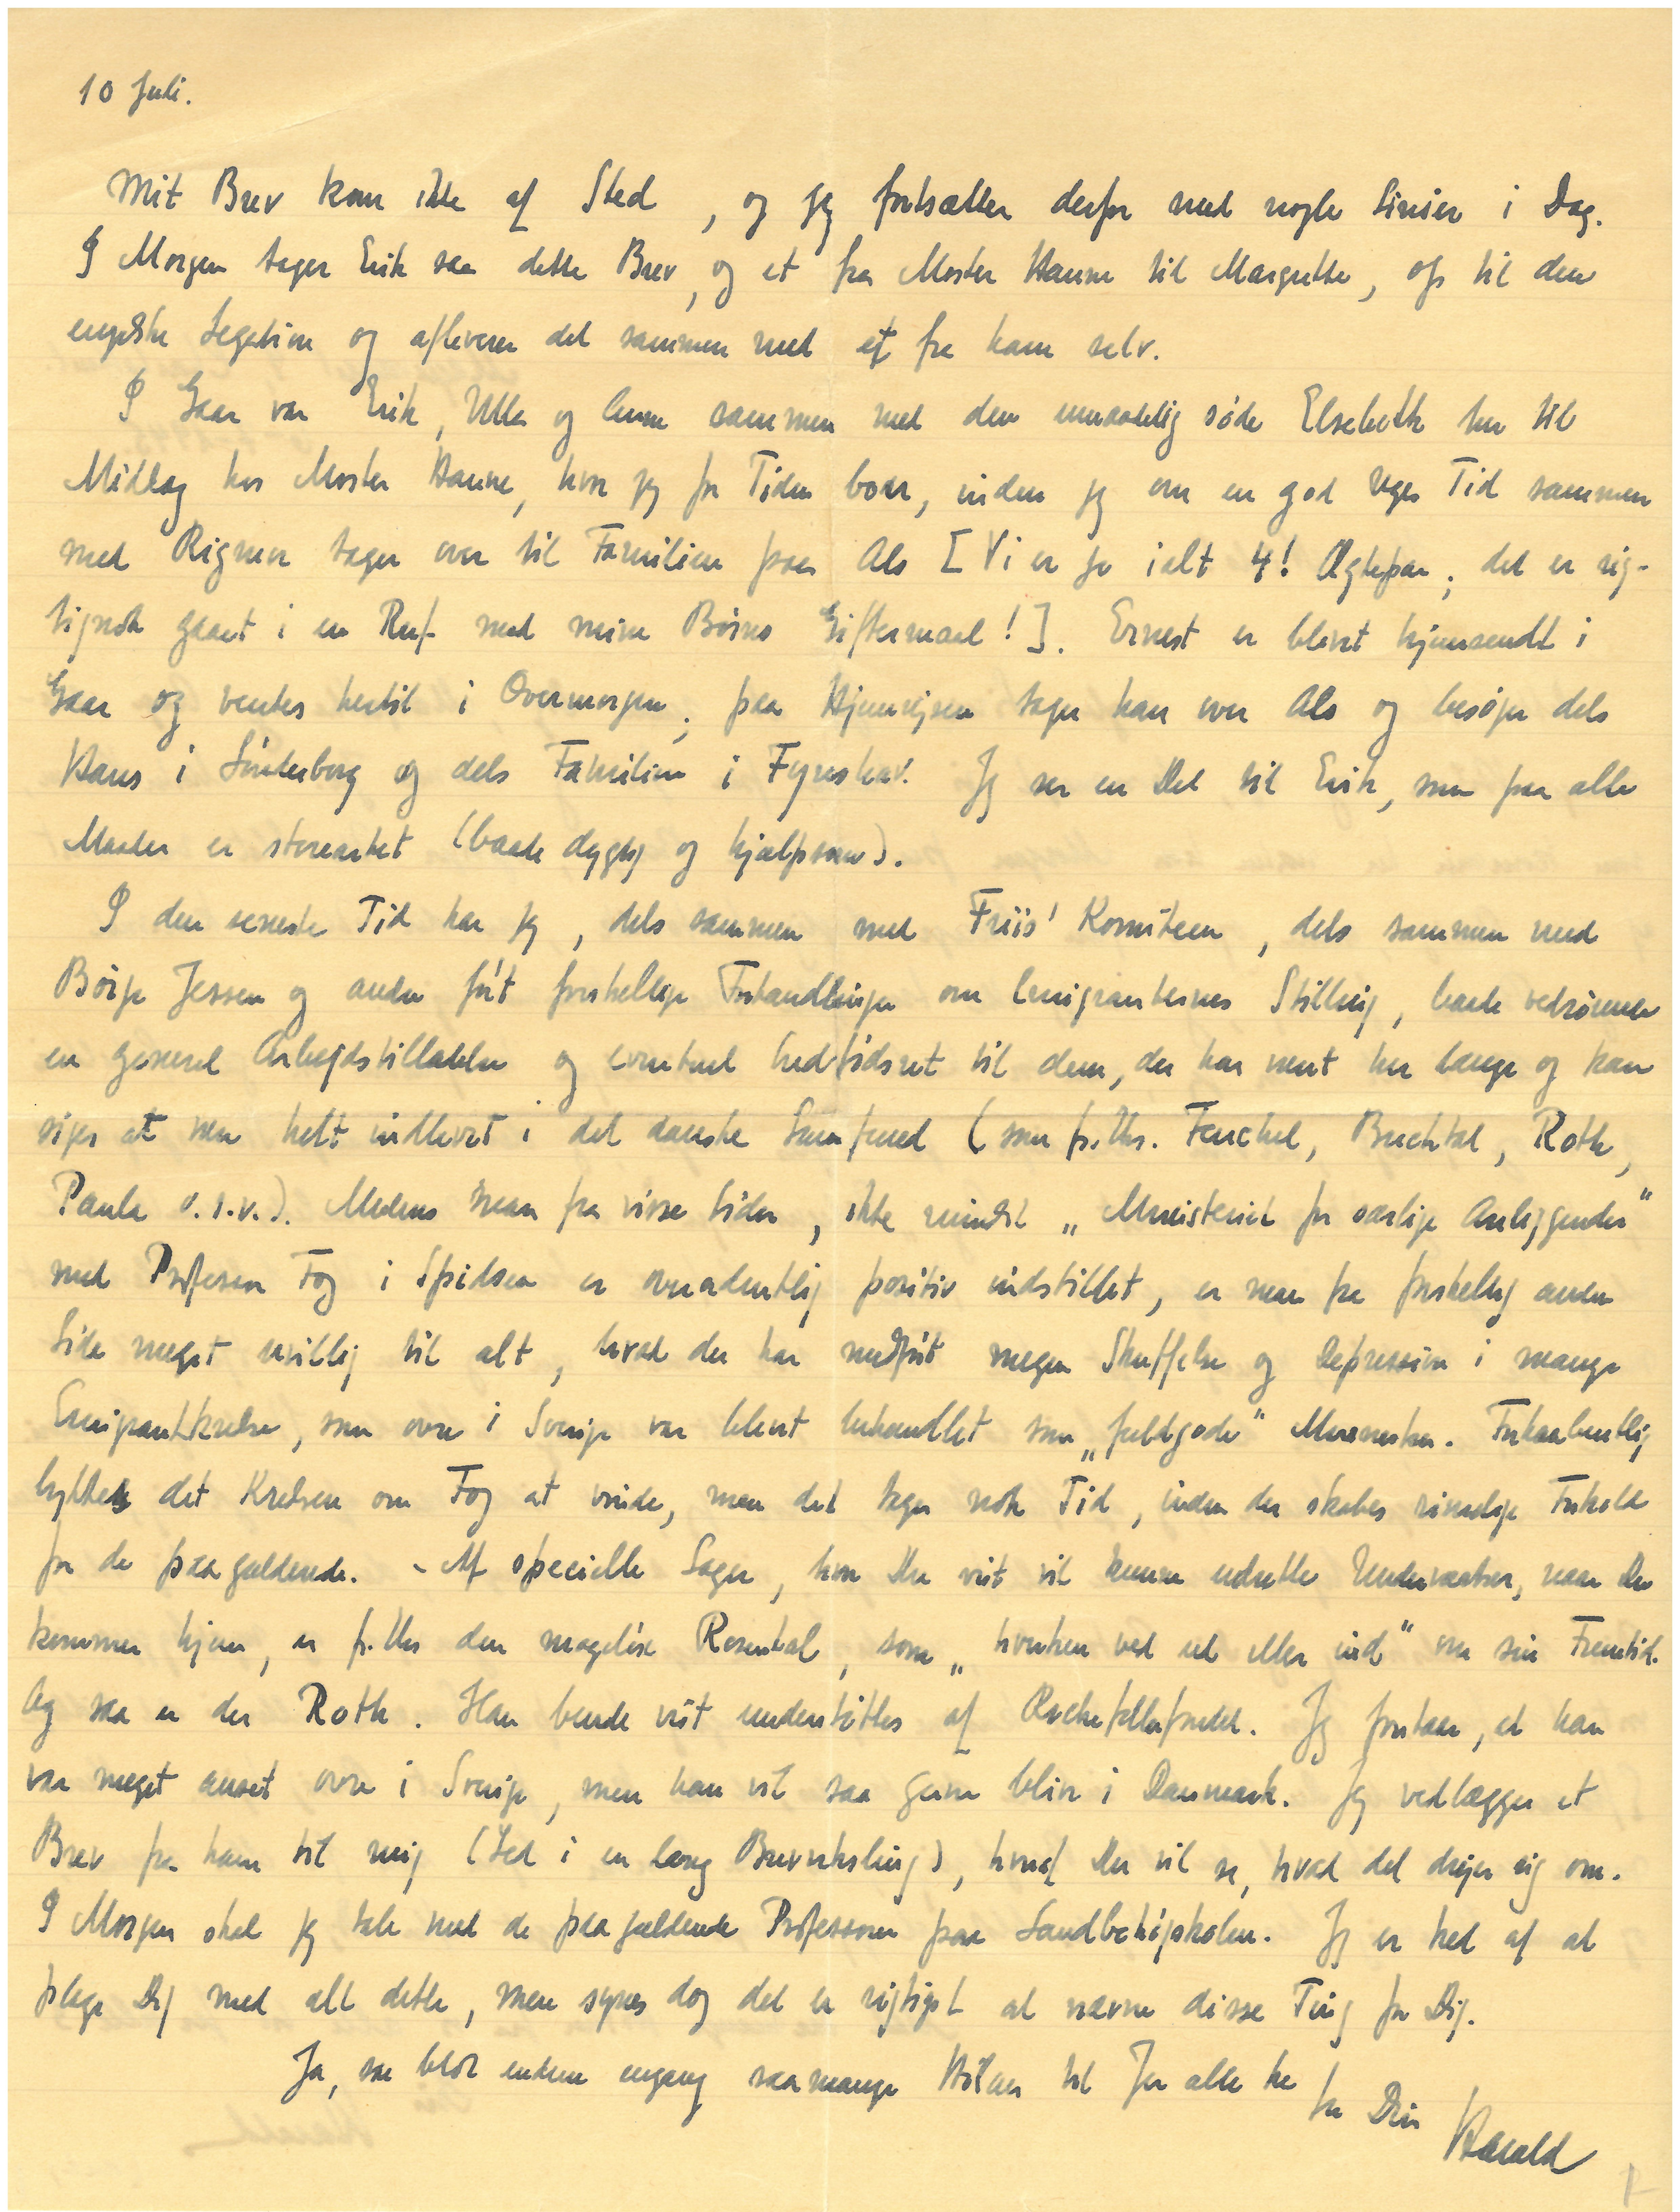 10 Juli.
Mit Brev kom ikke af Sted, og jeg fortsætter derfor med nogle Linier i Dag.
I Morgen tager Erik saa dette Brev, og et fra Moster Hanne til Margrethe, op til den
engelske Legation og afleverer det sammen med et fra ham selv.
I Gaar var Erik, Ulla og Anne sammen med den umaadelig søde Elsebeth her til
Middag hos Moster Hanne, hvor jeg for Tiden boer, inden jeg om en god Uges Tid sammen
med Rigmor tager over til Familien paa Als [Vi er jo ialt 4! Ægtepar; det er rig-
tignok gaaet i en Ruf med mine Børns Giftermaal!]. Ernest er blevet hjemsendt i
Gaar og ventes hertil i Overmorgen; paa Hjemrejsen tager han over Als og besøger dels
Hans i Sønderborg og dels Familien i Fynshav. Jeg ser en Del til Erik, som paa alle
Maader er storartet (baade dygtig og hjælpsom).
I den seneste Tid har jeg, dels sammen med Friis' Komiteen, dels sammen med
Børge Jessen og andre ført forskellige Forhandlinger om Emigranternes Stilling, baade vedrørende
en generel Arbejdstilladelse og eventuel Indfødsret til dem, der har været her længe og kan
siges at være helt indlevet i det danske Samfund (som f.Eks. Fenchel, Buchtal, Roth,
Paula o.s.v.). Medens man fra visse Sider, ikke mindst „Ministeriet for særlige Anliggender"
med Professor Fog i Spidsen er overordentlig positiv indstillet, er man fra forskellig anden
Side meget uvillig til alt, hvad der har medført megen Skuffelse og Depression i mange
Emigrantkredse, som ovre i Sverige var blevet behandlet som „fuldgode" Mennesker. Forhaabentlig
lykkes det Kredsen om Fog at vinde, men det tager nok Tid, inden der skabes rimelige Forhold
for de paagældende. - Af specielle Sager, hvor Du vist vil kunne udrette Underværker, naar Du
kommer hjem, er f.Eks den mageløse Rosental, som „hverken ved ud eller ind" om sin Fremtid.
Og saa er der Roth. Han burde vist understøttes af Rockefellerfondet. Jeg forstaar, at han
var meget anset ovre i Sverige, men han vil saa gerne blive i Danmark. Jeg vedlægger et
Brev fra ham til mig (Led i en lang Brevveksling), hvoraf Du vil se, hvad det drejer sig om.
I Morgen skal jeg tale med de paagældende Professorer paa Landbohøjskolen. Jeg er ked af at
plage Dig med alt dette, men synes dog det er rigtigst at nævne disse Ting for Dig.
Ja, saa blot endnu engang saa mange Hilsner til Jer alle
fra Din
Harald